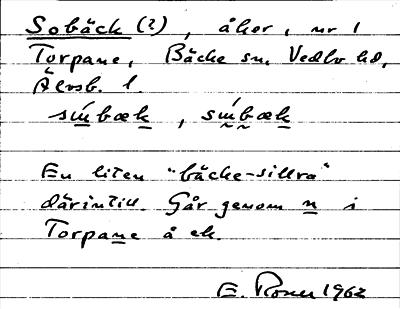 Sobäck (?), åker, nr 1
Torpane, Bäcke sn, Vedbo hd,
Älvsb. l.
súbæk, súbæk
En liten "bäcke-sillra"
därintill. Går genom n i
Torpane å ek.
E. Rosell 1962